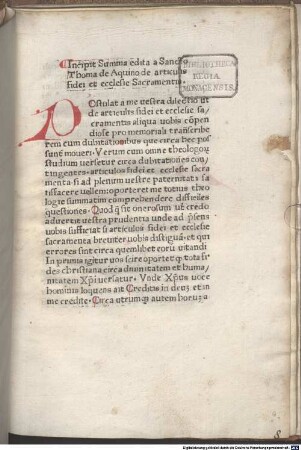 Incipit Summa edita a Sancto
Thoma de Aquino de articulis
fidei et ecclesie Sacramentis.
BIBLIOTHECA
REGIA
MONACENSIS.
POstulat a me vestra dilectio ut
de articulis fidei et ecclesie sa
cramentis aliqua vobis cōpen
diose pro memoriali transcribe
rem cum dubitationibus que circa hec pos
sunt moueri. Verum cum omne theologorū
studium versetur circa dubitationes con
tingentes articulos fidei et ecclesie sacra
menta. si ad plenum vestre paternitati sa
tisfacere vellem: oporteret me totius theo
logie summatim comprehendere difficiles
questiones. Quod q̄ sit onerosum ut credo
aduertit vestra prudentia unde ad p̄sens
vobis sufficiat si articulos fidei et ecclesie
sacramenta breuiter vobis distiguā. et qui
errores sint circa quemlibet eorū vitandi
In primis igitur vos scire oportet q̄ tota fi
des christiana circa diuinitatem et huma
nitatem Xp̄i versatur. Vnde Xp̄us voce
Iohannis loquens ait Creditis in deū et in
me credite. Circa utrumq̄ autem horum a